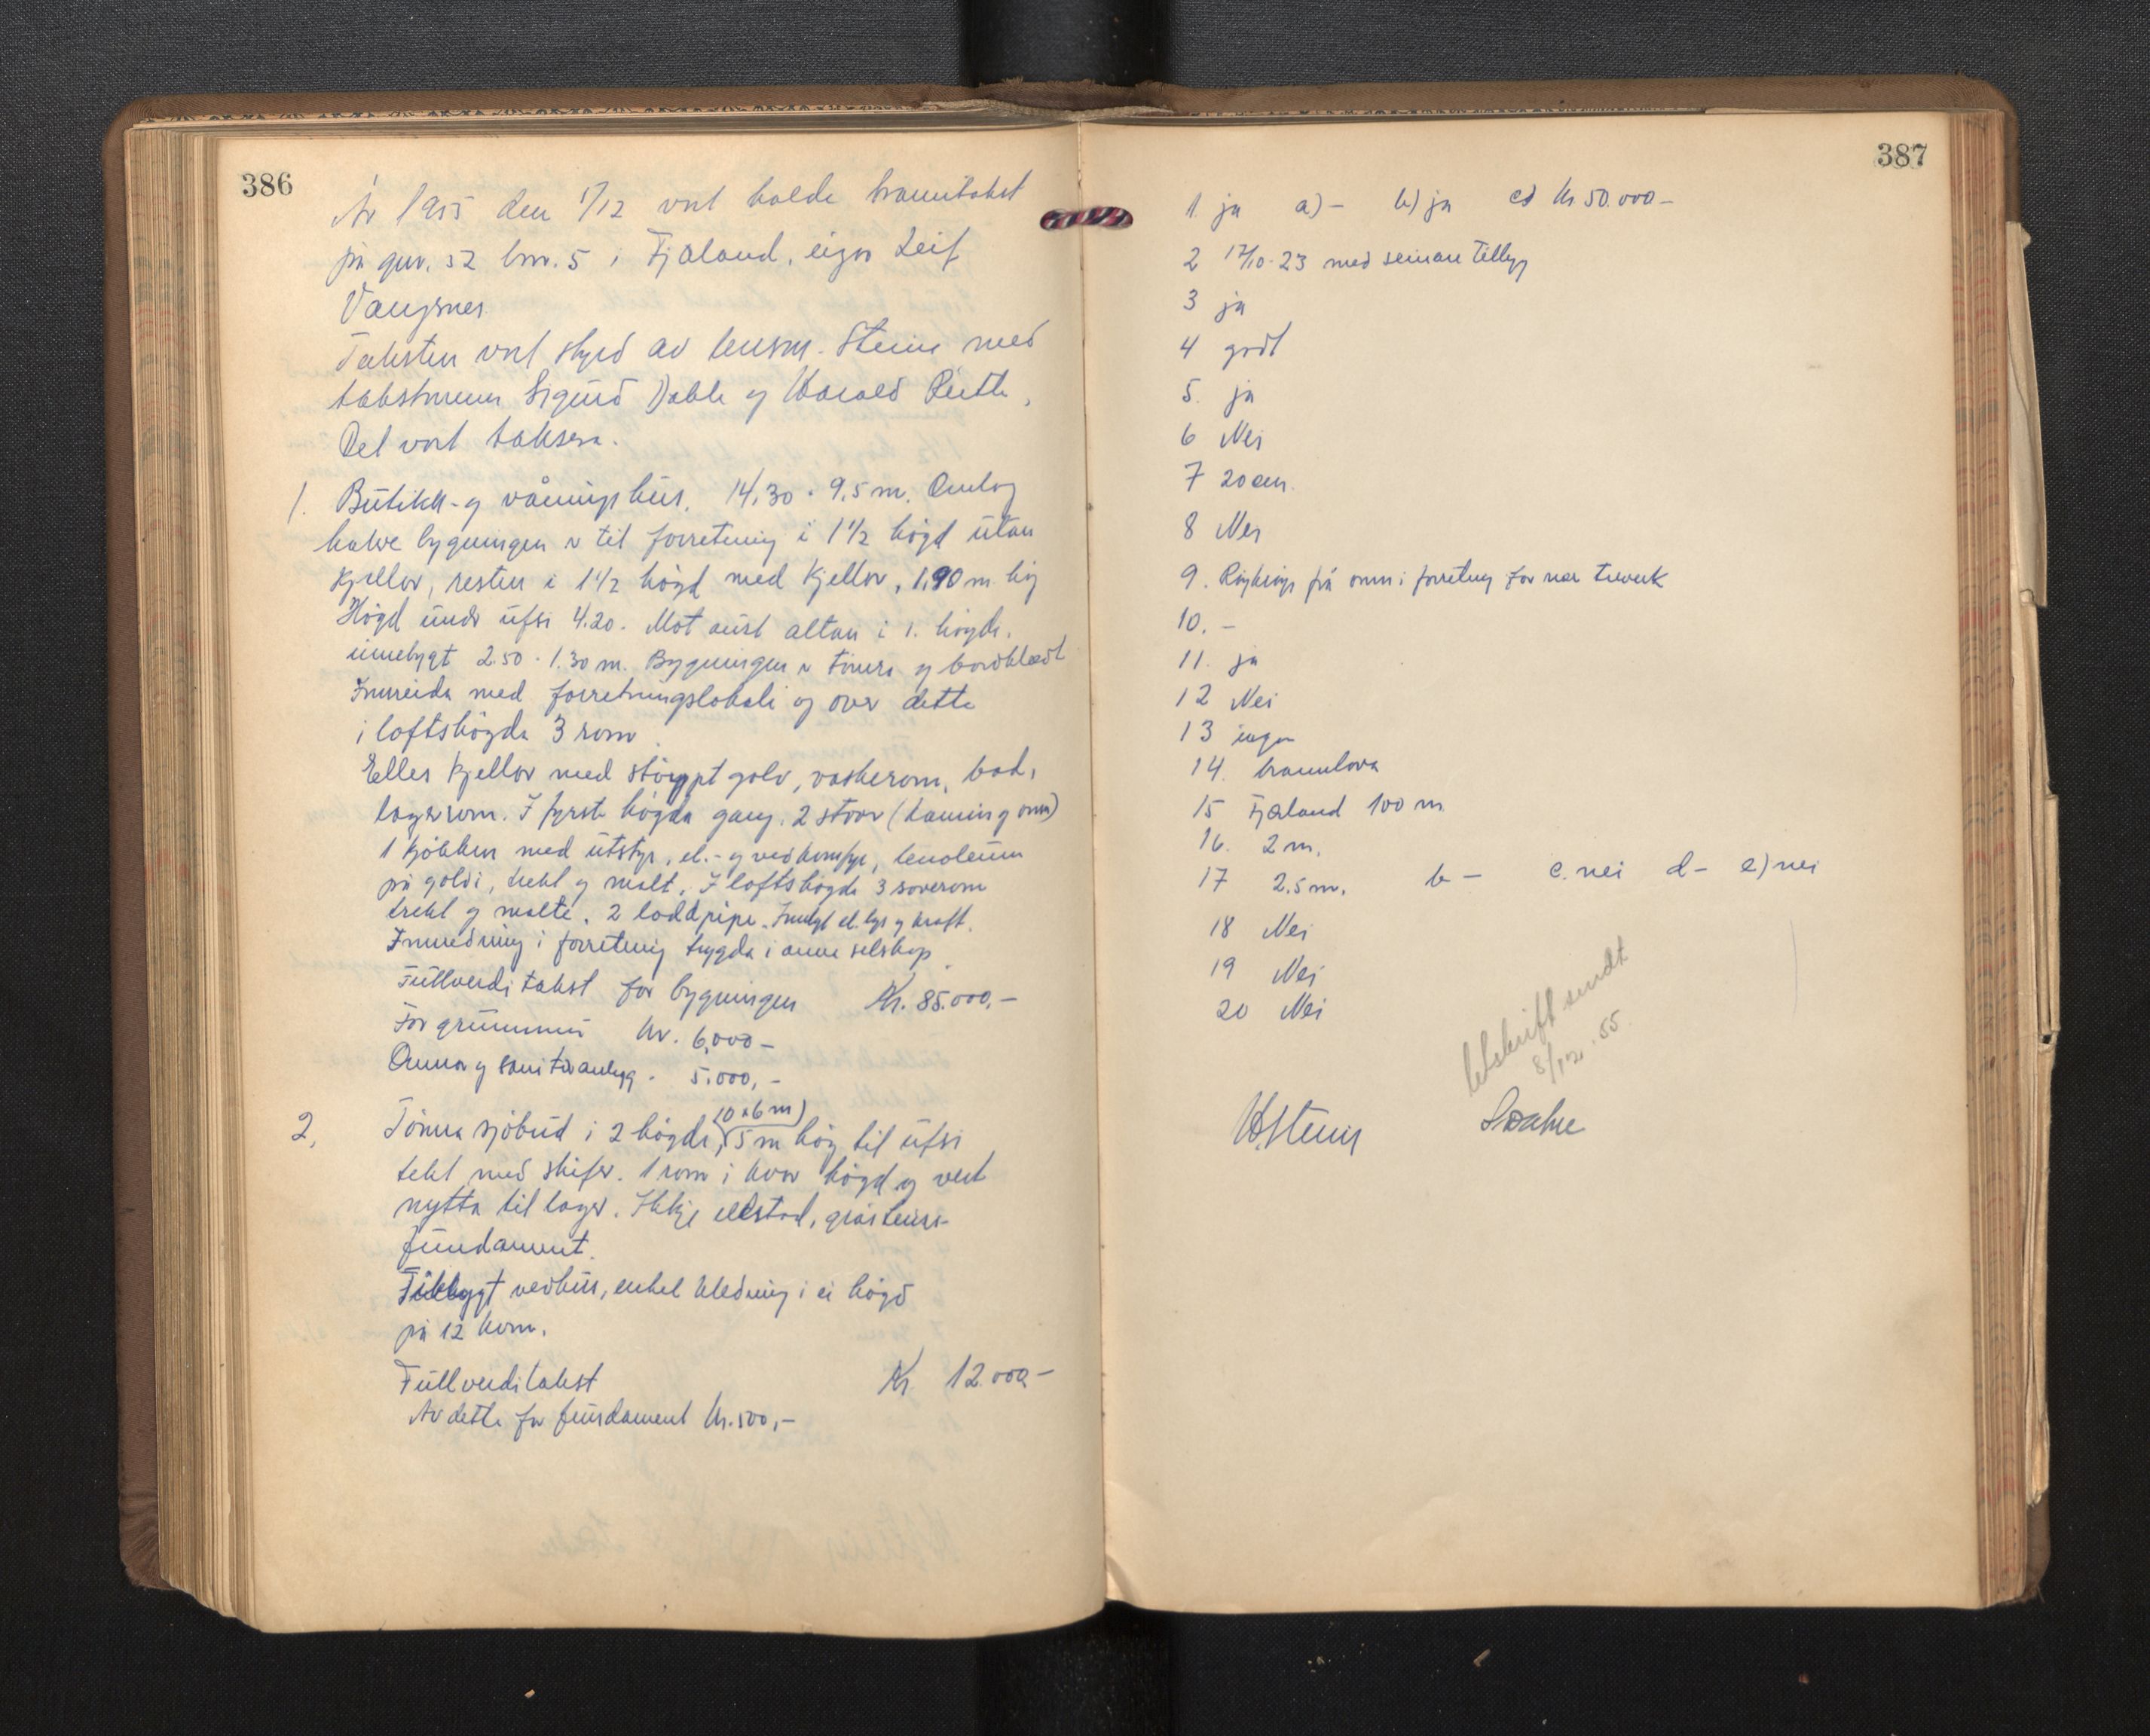 386
År 1955 den 1/12 vart halde branntakst
på gnr. 52 bnr. 5 i Fjærland, eigar Leif
Vangsnes
Taksten vart styrd av lensm. Steine med
takstmenn Sigurd Dahle og Harald
Det vart taksera.
1. Butikk- og våningshus. 14,30 · 9,5 m. Omlag
halve bygningen er til forretning i 1 1/2 høgd utan
kjellar, resten i 1 1/2 høgd med kjellar, 1,90 m høg
Høgd under ufsi 4.20. Mot aust altan i 1. høgda.
innebygt 2.50 · 1.30 m. Bygningen er tømra og bordklædt
Innreida med forretningslokale og over dette
i loftshøgda 3 rom
Elles kjellar med støypt golv, vaskerom, bad,
lagerrom. I fyrste høgda gang. 2 stover (kamin og omn)
1 kjøkken med utstyr, el.- og vedkomfyr, lenoleum
på golvi, trekt og malt. I loftshøgda 3 soverom
trekt og malte. 2 loddpipe. Innlagt el. lys og kraft.
Innreidning i forretning trygda i anna selskap
Fullverditakst for bygningen Kr. 85.000,-
For grunnmur kr. 6,000 -
Omnar og sanitæranlegg - 5.000,-
2, Tømra sjøbud i 2 høgder, (10 x 6 m) 5 m høg til ufsi
tekt med skifer. 1 rom i kvar høgd og vert
nytta til lager. Ikkje eldstad, gråsteins-
fundament.
Tilbygt vedhus, enkel kledning i ei høgd
på 12 kvm.
Fullverditakst Kr 12.000 -
Av dette for fundament kr. 500,-
387
1. ja a) - b) ja c) kr 50.000 -
2 17/10-23 med seinare tilbygg
3 ja
4 godt
5. ja
6 Nei
7 20 cm.
8 Nei
9. Røykrøyr frå omn i forretning for nær treverk
10. -
11. ja
12 Nei
13 ingen
14. brannlova
15 Fjærland 100 m
16. 2 m.
17 2,5 m, b - c. nei d - e) nei
18 Nei
19 Nei
20 Nei
Utskrift sendt
8/12 · 55.
H. Steine S Dahle